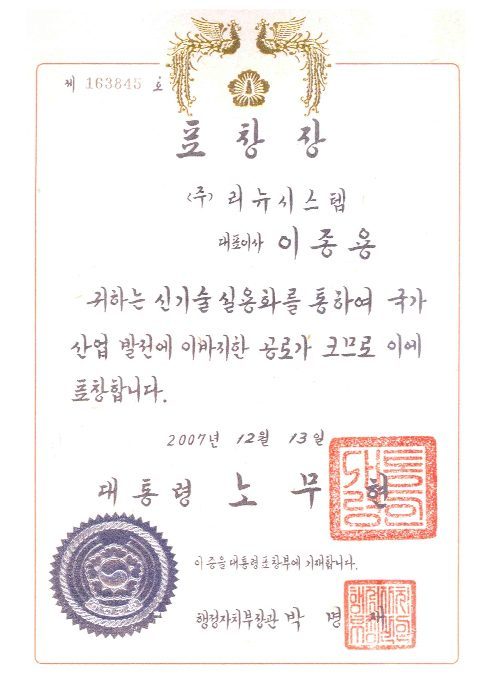 제 163845 호
표창장
(주) 리뉴시스템
대표이사 이종용
귀하는 신기술 실용화를 통하여 국가
산업 발전에 이바지한 공로가 크므로 이에
표창합니다.
2007년 12월 13일
대통령 노무현
이 증을 대통령표창부에 기재합니다.
행정자치부장관 박명재